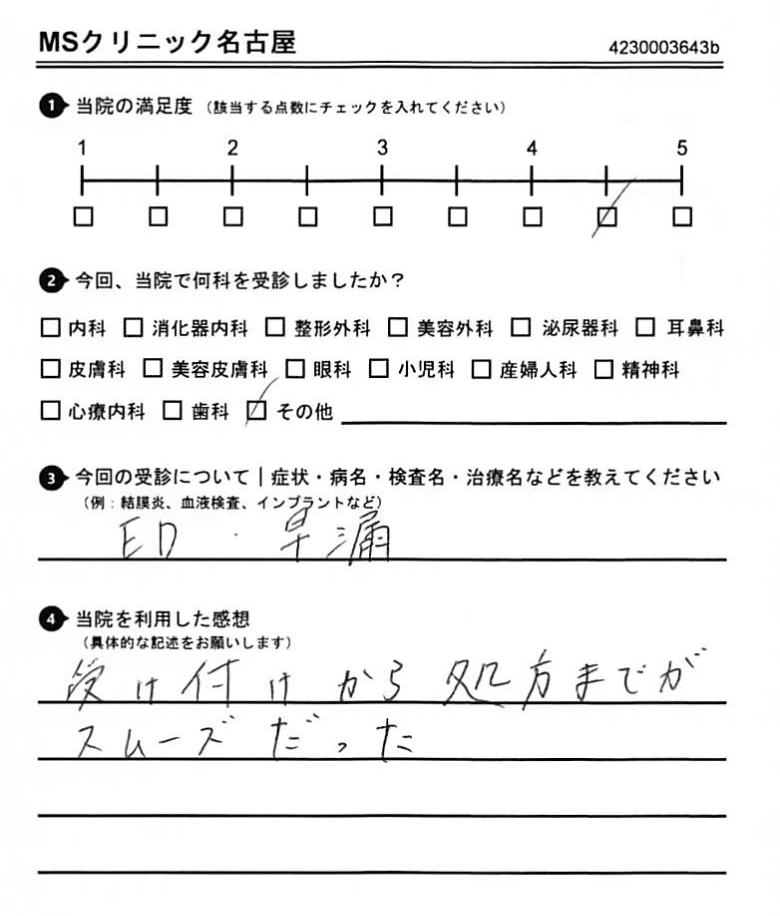 MSクリニック名古屋 4230003643b
1 当院の満足度（該当する点数にチェックを入れてください）
1 2 3 4 5
□ □ □ □ □ □ □ ☑ □
2 今回、当院で何科を受診しましたか？
□ 内科 □ 消化器内科 □ 整形外科 □ 美容外科 □ 泌尿器科 □ 耳鼻科
□ 皮膚科 □ 美容皮膚科 □ 眼科 □ 小児科 □ 産婦人科 □ 精神科
□ 心療内科 □ 歯科 ☑ その他
3 今回の受診について｜症状・病名・検査名・治療名などを教えてください
（例：結膜炎、血液検査、インプラントなど）
ED ・ 早漏
4 当院を利用した感想
（具体的な記述をお願いします）
受け付けから処方までが
スムーズだった